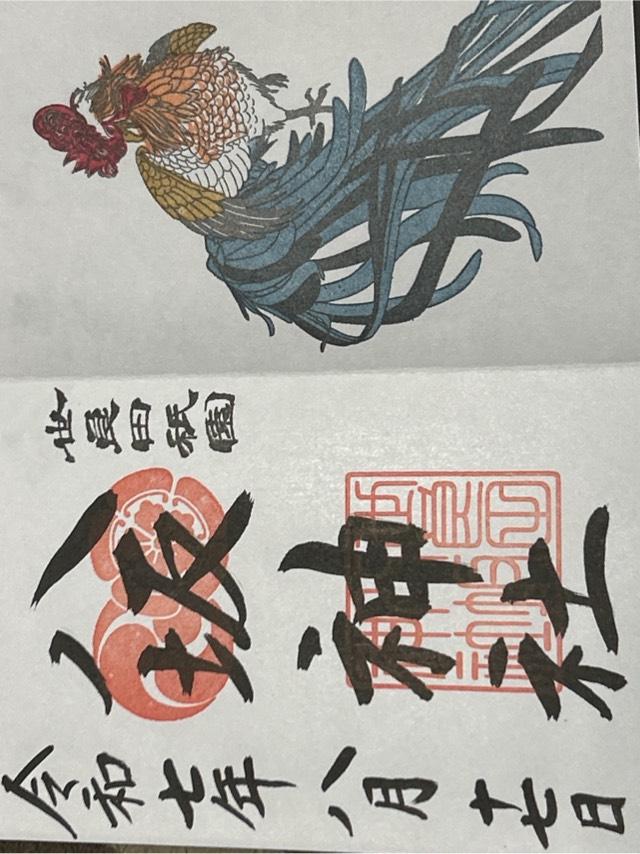 世良田祇園
八坂神社
令和七年八月十七日